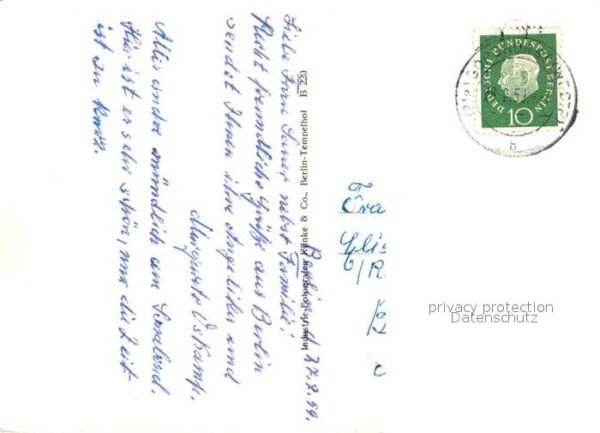 Berlin, 27.8.59.
Liebe Frau Sauer nebst Familie!
Recht freundliche Grüße aus Berlin
sendet Ihnen ihre Angelika und
Margarete
Alles andre mündlich am Sonnabend.
Hier ist es sehr schön, nur die Zeit
ist zu kurz.
Industrie-Fotografen Klinke & Co., Berlin-Tempelhof B 220
DEUTSCHE BUNDESPOST BERLIN
10
b
Fra
Elis
/R
privacy protection
Datenschutz